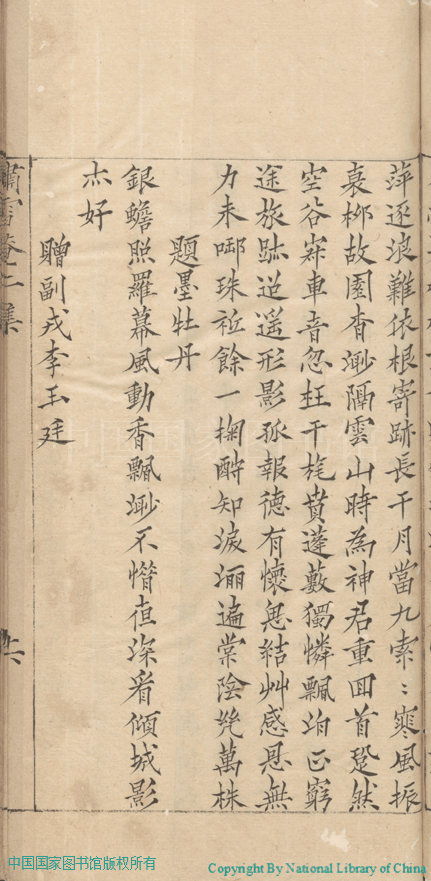 萍逐浪難依根寄跡長干月當九索〻寒風振
裹栁故園杳渺隔雲山時為神君重回首跫然
空谷寂車音忽枉干旄賁蓬藪獨憐飄泊正窮
途旅跡迢遥形影孤報德有懷思結艸感恩無
力未啣珠袛餘一掬酧知淚洒遍棠陰幾萬株
題墨牡丹
銀蟾照羅幕風動香飄渺不惜夜深看傾城影
亦好
贈副戎李玉廷
二集
六
中国国家图书馆版权所有
Copyright By National Library of China